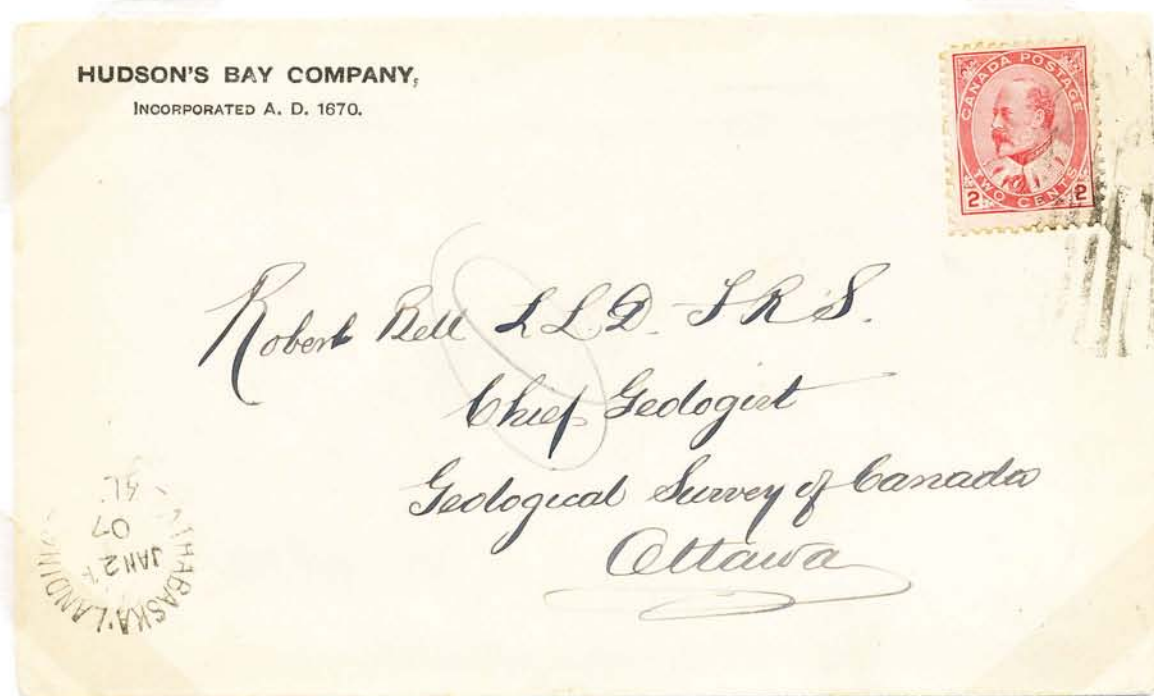 HUDSON'S BAY COMPANY,
INCORPORATED A. D. 1670.
CANADA POSTAGE
TWO CENTS
2 2
Robert Bell L L. D. F R S.
Chief Geologist
Geological Survey of Canada
Ottawa
ATHABASKA LANDING
JAN 2
07